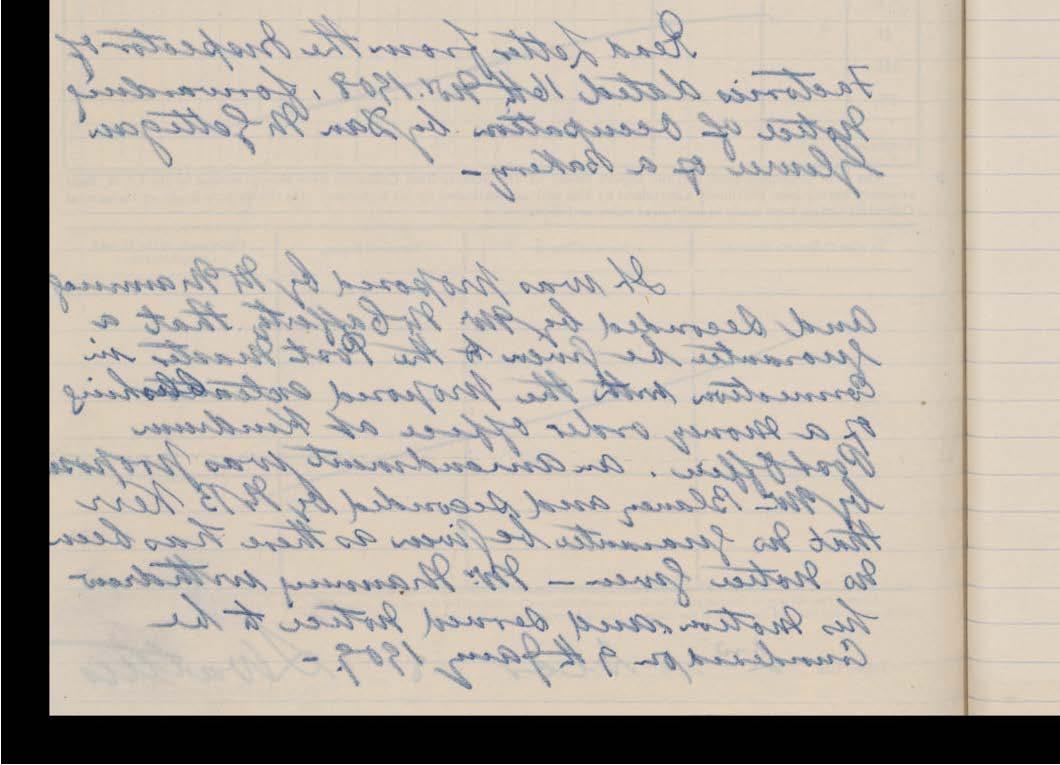 Read letter from the Inspector of
Factories dated 16th Nov. 1908, forwarding
Notice of Occupation by Dan McGettigan
of a Bakery –
It was proposed by Mr Manning
and seconded by Mr McCafferty that a
guarantee be given to the Post Master in
connection with the proposed establishing
of a money order office at Kindrum
Post Office. an amendment was propose
by Mr Blaney and seconded by Kerr
that no guarantee be given as there has been
no notice given – Mr Manning withdrew
his motion and served notice to be
Considered on 9th Jany 1909 –